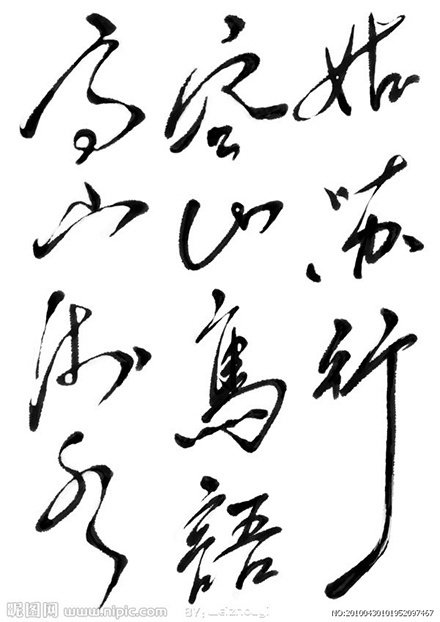 姑苏行
空山鳥語
高山流水
昵图网 www.nipic.com
BY:
NO:20100430101952097467